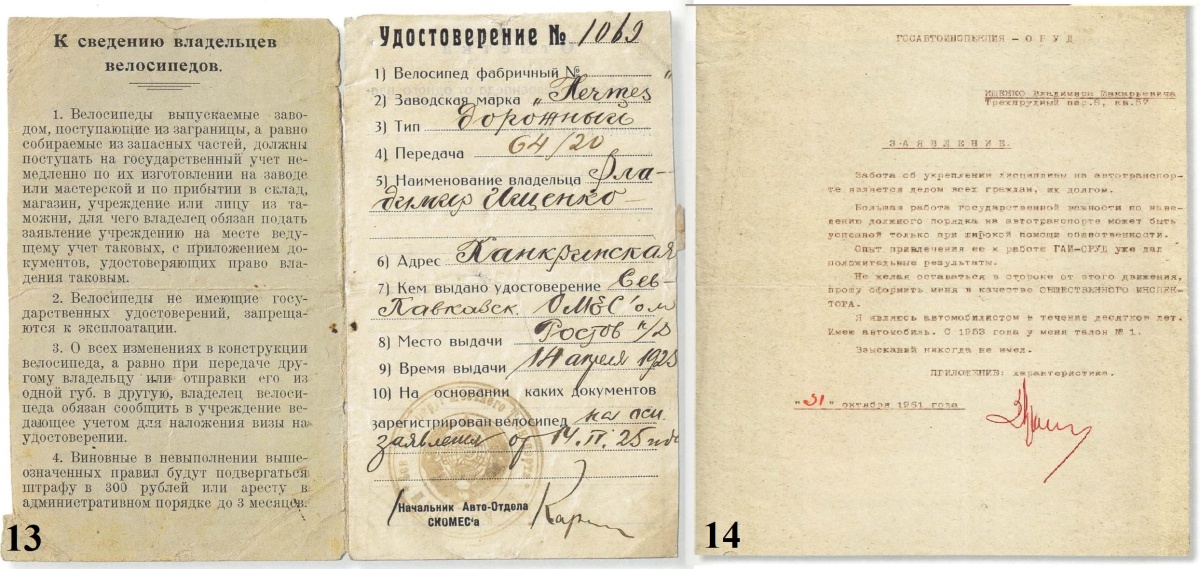 К сведению владельцев
велосипедов.
1. Велосипеды выпускаемые заво-
дом, поступающие из заграницы, а равно
собираемые из запасных частей, должны
поступать на государственный учет не-
медленно по их изготовлении на заводе
или мастерской и по прибытии в склад,
магазин, учреждение или лицу из та-
можни, для чего владелец обязан подать
заявление учреждению на месте веду-
щему учет таковых, с приложением до-
кументов, удостоверяющих право вла-
дения таковым.
2. Велосипеды не имеющие госу-
дарственных удостоверений, запреща-
ются к эксплоатации.
3. О всех изменениях в конструкции
велосипеда, а равно при передаче дру-
гому владельцу или отправки его из
одной губ. в другую, владелец велоси-
педа обязан сообщить в учреждение ве-
дающее учетом для наложения визы на
удостоверении.
4. Виновные в невыполнении выше-
означенных правил будут подвергаться
штрафу в 300 рублей или аресту в
административном порядке до 3 месяцев.
13
Удостоверение № 1069
1) Велосипед фабричный № "
2) Заводская марка „Hermes
3) Тип дорожный
4) Передача 64/20
5) Наименование владельца Вла-
димир Ищенко
6) Адрес Канкринская
7) Кем выдано удостоверение Сев-
Кавказск. ОМЕС'ом
8) Место выдачи Ростов н/Д
9) Время выдачи 14 апреля 1925
10) На основании каких документов
зарегистрирован велосипед на осн.
заявления от 14.IV.25 года
Начальник Авто-Отдела
СКОМЕС'а
14
ГОСАВТОИНСПЕКЦИЯ - ОРУД
ИЩЕНКО Владимира Макарьевича
Трехпрудный пер.8, кв.57
ЗАЯВЛЕНИЕ.
Забота об укреплении дисциплины на автотранспор-
те является делом всех граждан, их долгом.
Большая работа государственной важности по наве-
дению должного порядка на автотранспорте может быть
успешной только при широкой помощи общественности.
Опыт привлечения ее к работе ГАИ-ОРУД уже дал
положительные результаты.
Не желая оставаться в стороне от этого движения,
прошу оформить меня в качестве ОБЩЕСТВЕННОГО ИНСПЕК-
ТОРА.
Я являюсь автомобилистом в течение десятков лет.
Имею автомобиль. С 1953 года у меня талон № 1.
Взысканий никогда не имел.
ПРИЛОЖЕНИЕ: характеристика.
"31" октября 1961 года